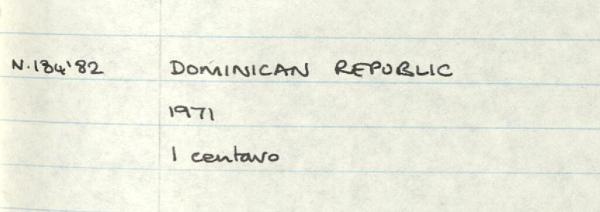 N.184'82 DOMINICAN REPUBLIC
1971
1 centavo